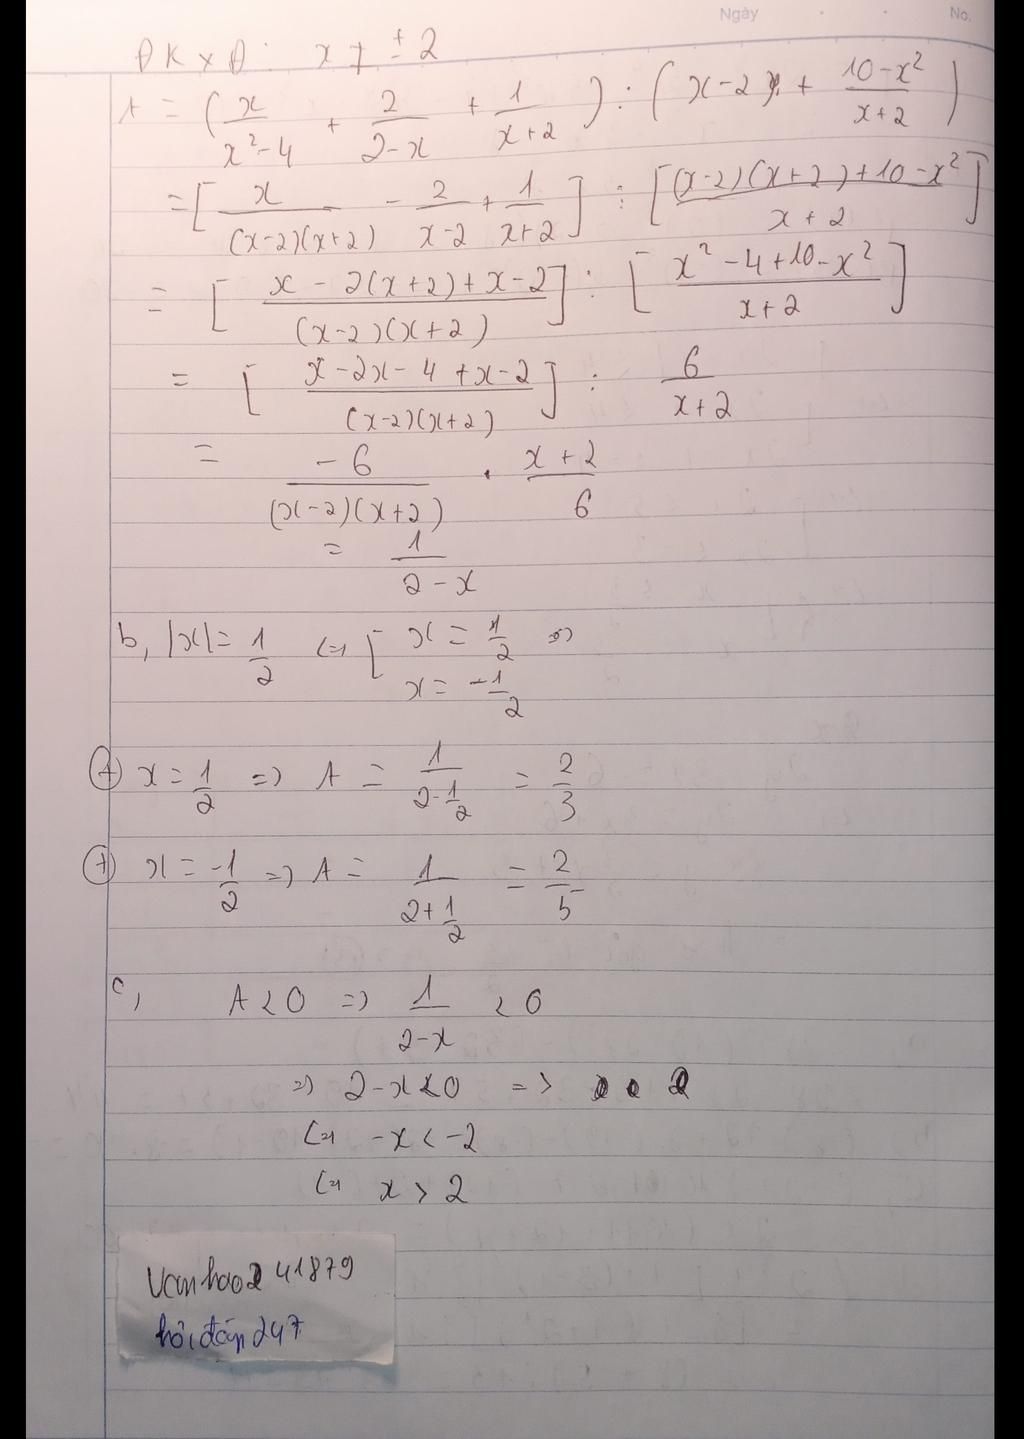 Ngày No.
ĐKXĐ: x ≠ ± 2
A = (x/(x²-4) + 2/(2-x) + 1/(x+2)) : (x-2 + (10-x²)/(x+2))
= [x/((x-2)(x+2)) - 2/(x-2) + 1/(x+2)] : [((x-2)(x+2)+10-x²)/(x+2)]
= [(x - 2(x+2)+x-2)/((x-2)(x+2))] : [(x²-4+10-x²)/(x+2)]
= [(x-2x-4+x-2)/((x-2)(x+2))] : 6/(x+2)
= -6/((x-2)(x+2)) . (x+2)/6
= 1/(2-x)
b, |x| = 1/2 <=> [ x = 1/2 =>
x = -1/2
(+) x = 1/2 => A = 1/(2-1/2) = 2/3
(+) x = -1/2 => A = 1/(2+1/2) = 2/5
c, A < 0 => 1/(2-x) < 0
=> 2-x<0 => 2
<=> -x < -2
<=> x > 2
Vanhao241879
hỏi đáp 247